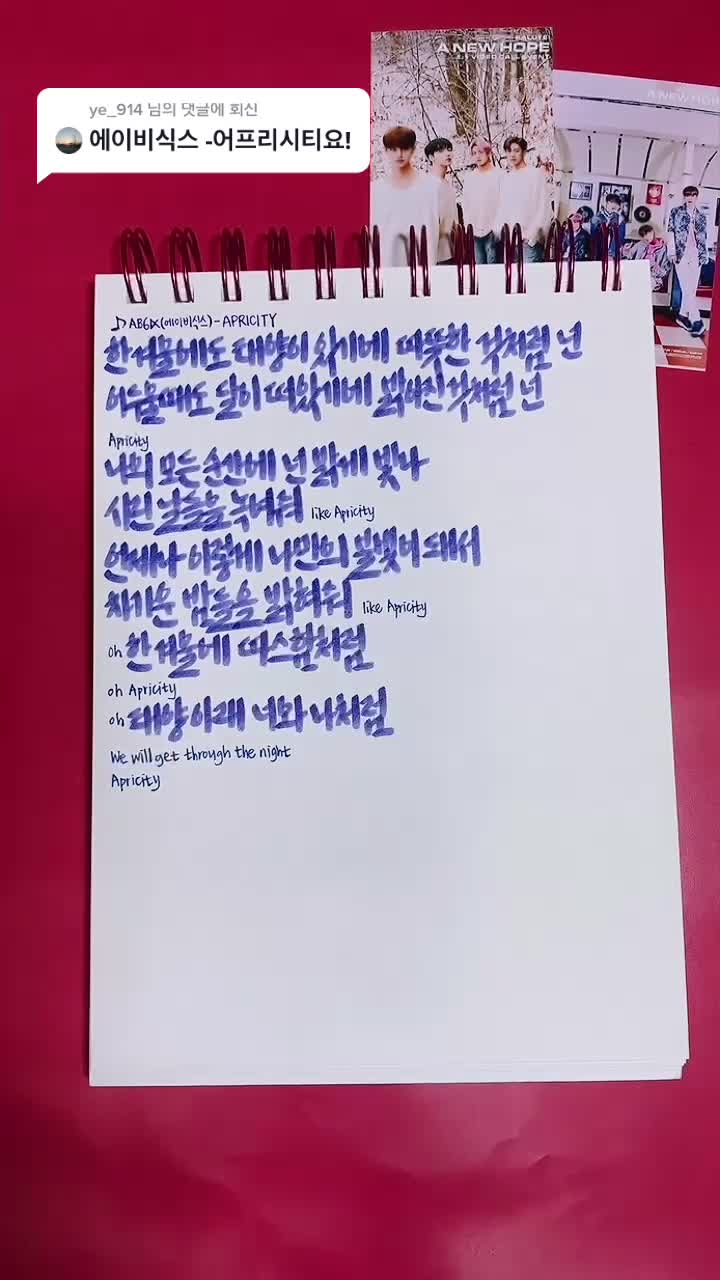 SALUTE!
A NEW HOPE
1:1 VIDEO CALL EVENT
A NEW HOP
ye_914 님의 댓글에 회신
에이비식스 -어프리시티요!
♪ AB6IX(에이비식스) - APRICITY
한겨울에도 태양이 있기에 따뜻한 것처럼 넌
어두울때도 달이 떠있기에 밝아진 것처럼 넌
Apricity
나의 모든 순간에 넌 밝게 빛나
시린 날들을 녹여줘 like Apricity
언제나 이렇게 나만의 불빛이 돼줘
차가운 밤들을 밝혀줘 like Apricity
oh 한겨울에 따스함처럼
oh Apricity
oh 태양 아래 너와 나처럼
We will get through the night
Apricity